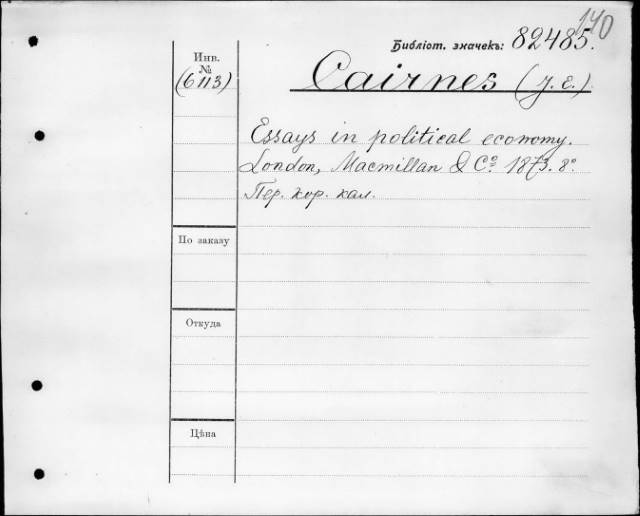 140
Библіот. значекъ: 82485.
Инв.
№
(6113)
Cairnes (J. E.)
Essays in political economy.
London, Macmillan & Cº. 1873. 8º
Пер. кор. кал.
По заказу
Откуда
Цѣна